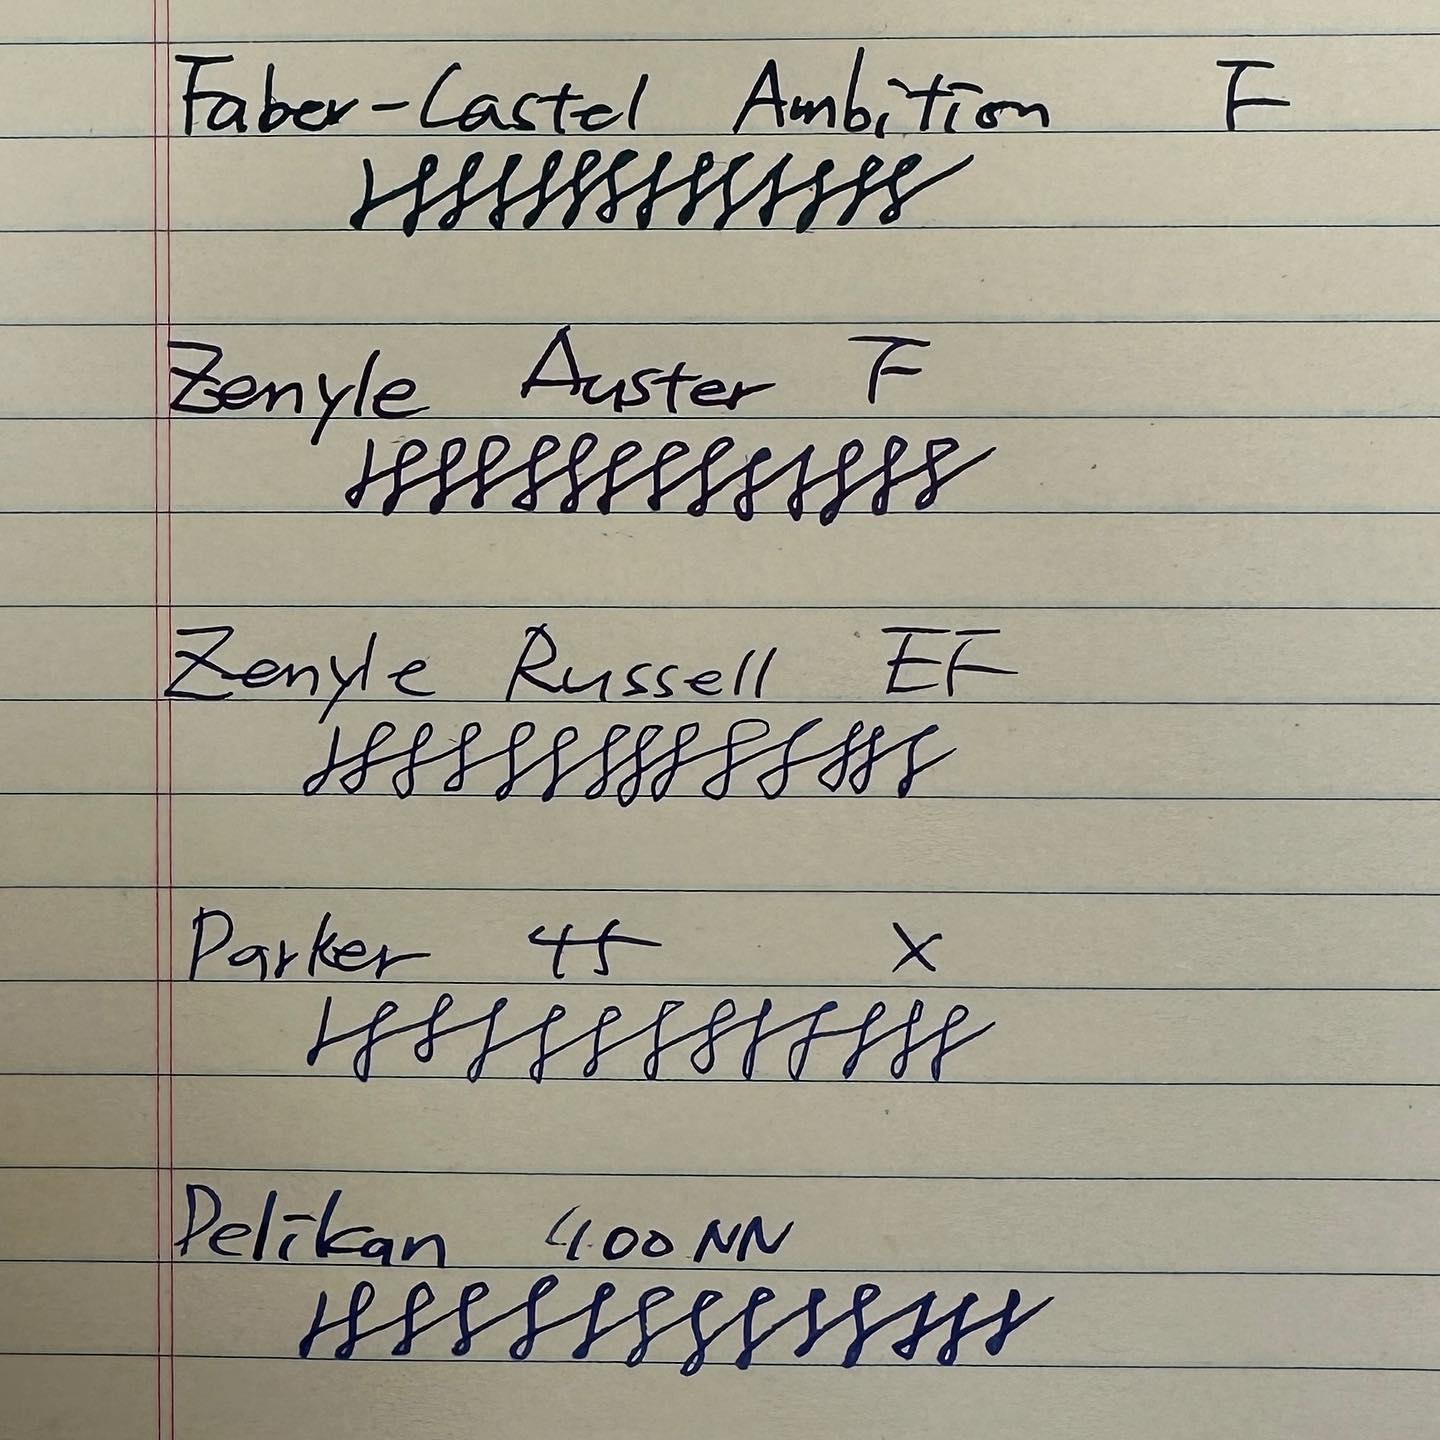 Faber-Castel Ambition F
Zenyle Auster F
Zenyle Russell EF
Parker 45 X
Pelikan 400NN